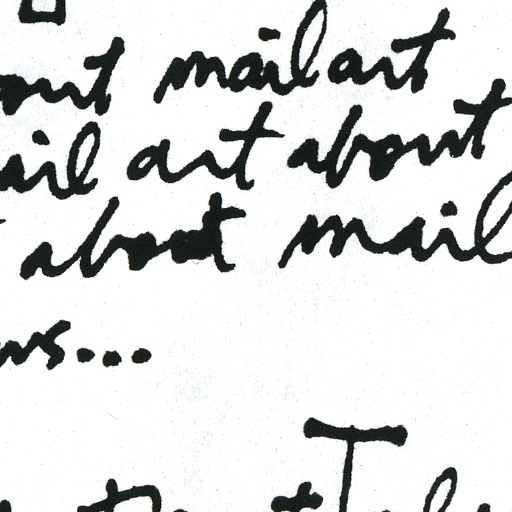 out mail art
ail art about
about mail
ws...